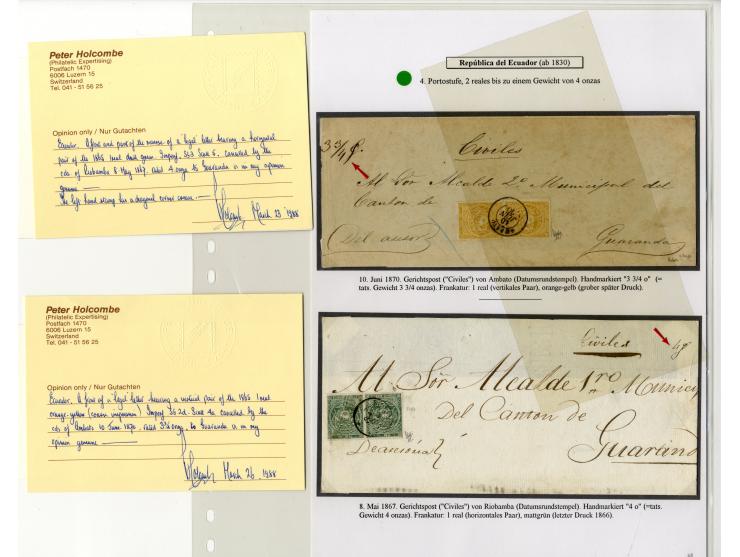 Peter Holcombe
(Philatelic Expertising)
Postfach 1470
6006 Luzern 15
Switzerland
Tel. 041 - 51 56 25
Opinion only / Nur Gutachten
Ecuador. A front and part of the reverse of a "legal" letter bearing a horizontal
pair of the 1865 1 real dark green. Imperf. SG3 Scott 5. Cancelled by the
cds of Riobamba 8 May 1867. rated 4 onza to Guaranda is in my opinion
genuine
The left hand stamp has a diagonal corner crease.
March 23 1988
Peter Holcombe
(Philatelic Expertising)
Postfach 1470
6006 Luzern 15
Switzerland
Tel. 041 - 51 56 25
Opinion only / Nur Gutachten
Ecuador. A front of a "legal" letter bearing a vertical pair of the 1865 1 real
orange-yellow (coarse impression) Imperf SG 2d. Scott 4a cancelled by the
cds of Ambato 10 June 1870. rated 3¾ onza. to Guaranda is in my
opinion genuine
March 26. 1988
República del Ecuador (ab 1830)
4. Portostufe, 2 reales bis zu einem Gewicht von 4 onzas
3 3/4
Civiles
Al Sor Alcalde 2o Municipal del
Canton de
Guaranda
10. Juni 1870. Gerichtspost ("Civiles") von Ambato (Datumsrundstempel). Handmarkiert "3 3/4 o" (=
tats. Gewicht 3 3/4 onzas). Frankatur: 1 real (vertikales Paar), orange-gelb (grober später Druck).
Civiles
Al Sor Alcalde 1ro Municip
Del Canton de
Guarand
8. Mai 1867. Gerichtspost ("Civiles") von Riobamba (Datumsrundstempel). Handmarkiert "4 o" (=tats.
Gewicht 4 onzas). Frankatur: 1 real (horizontales Paar), mattgrün (letzter Druck 1866).